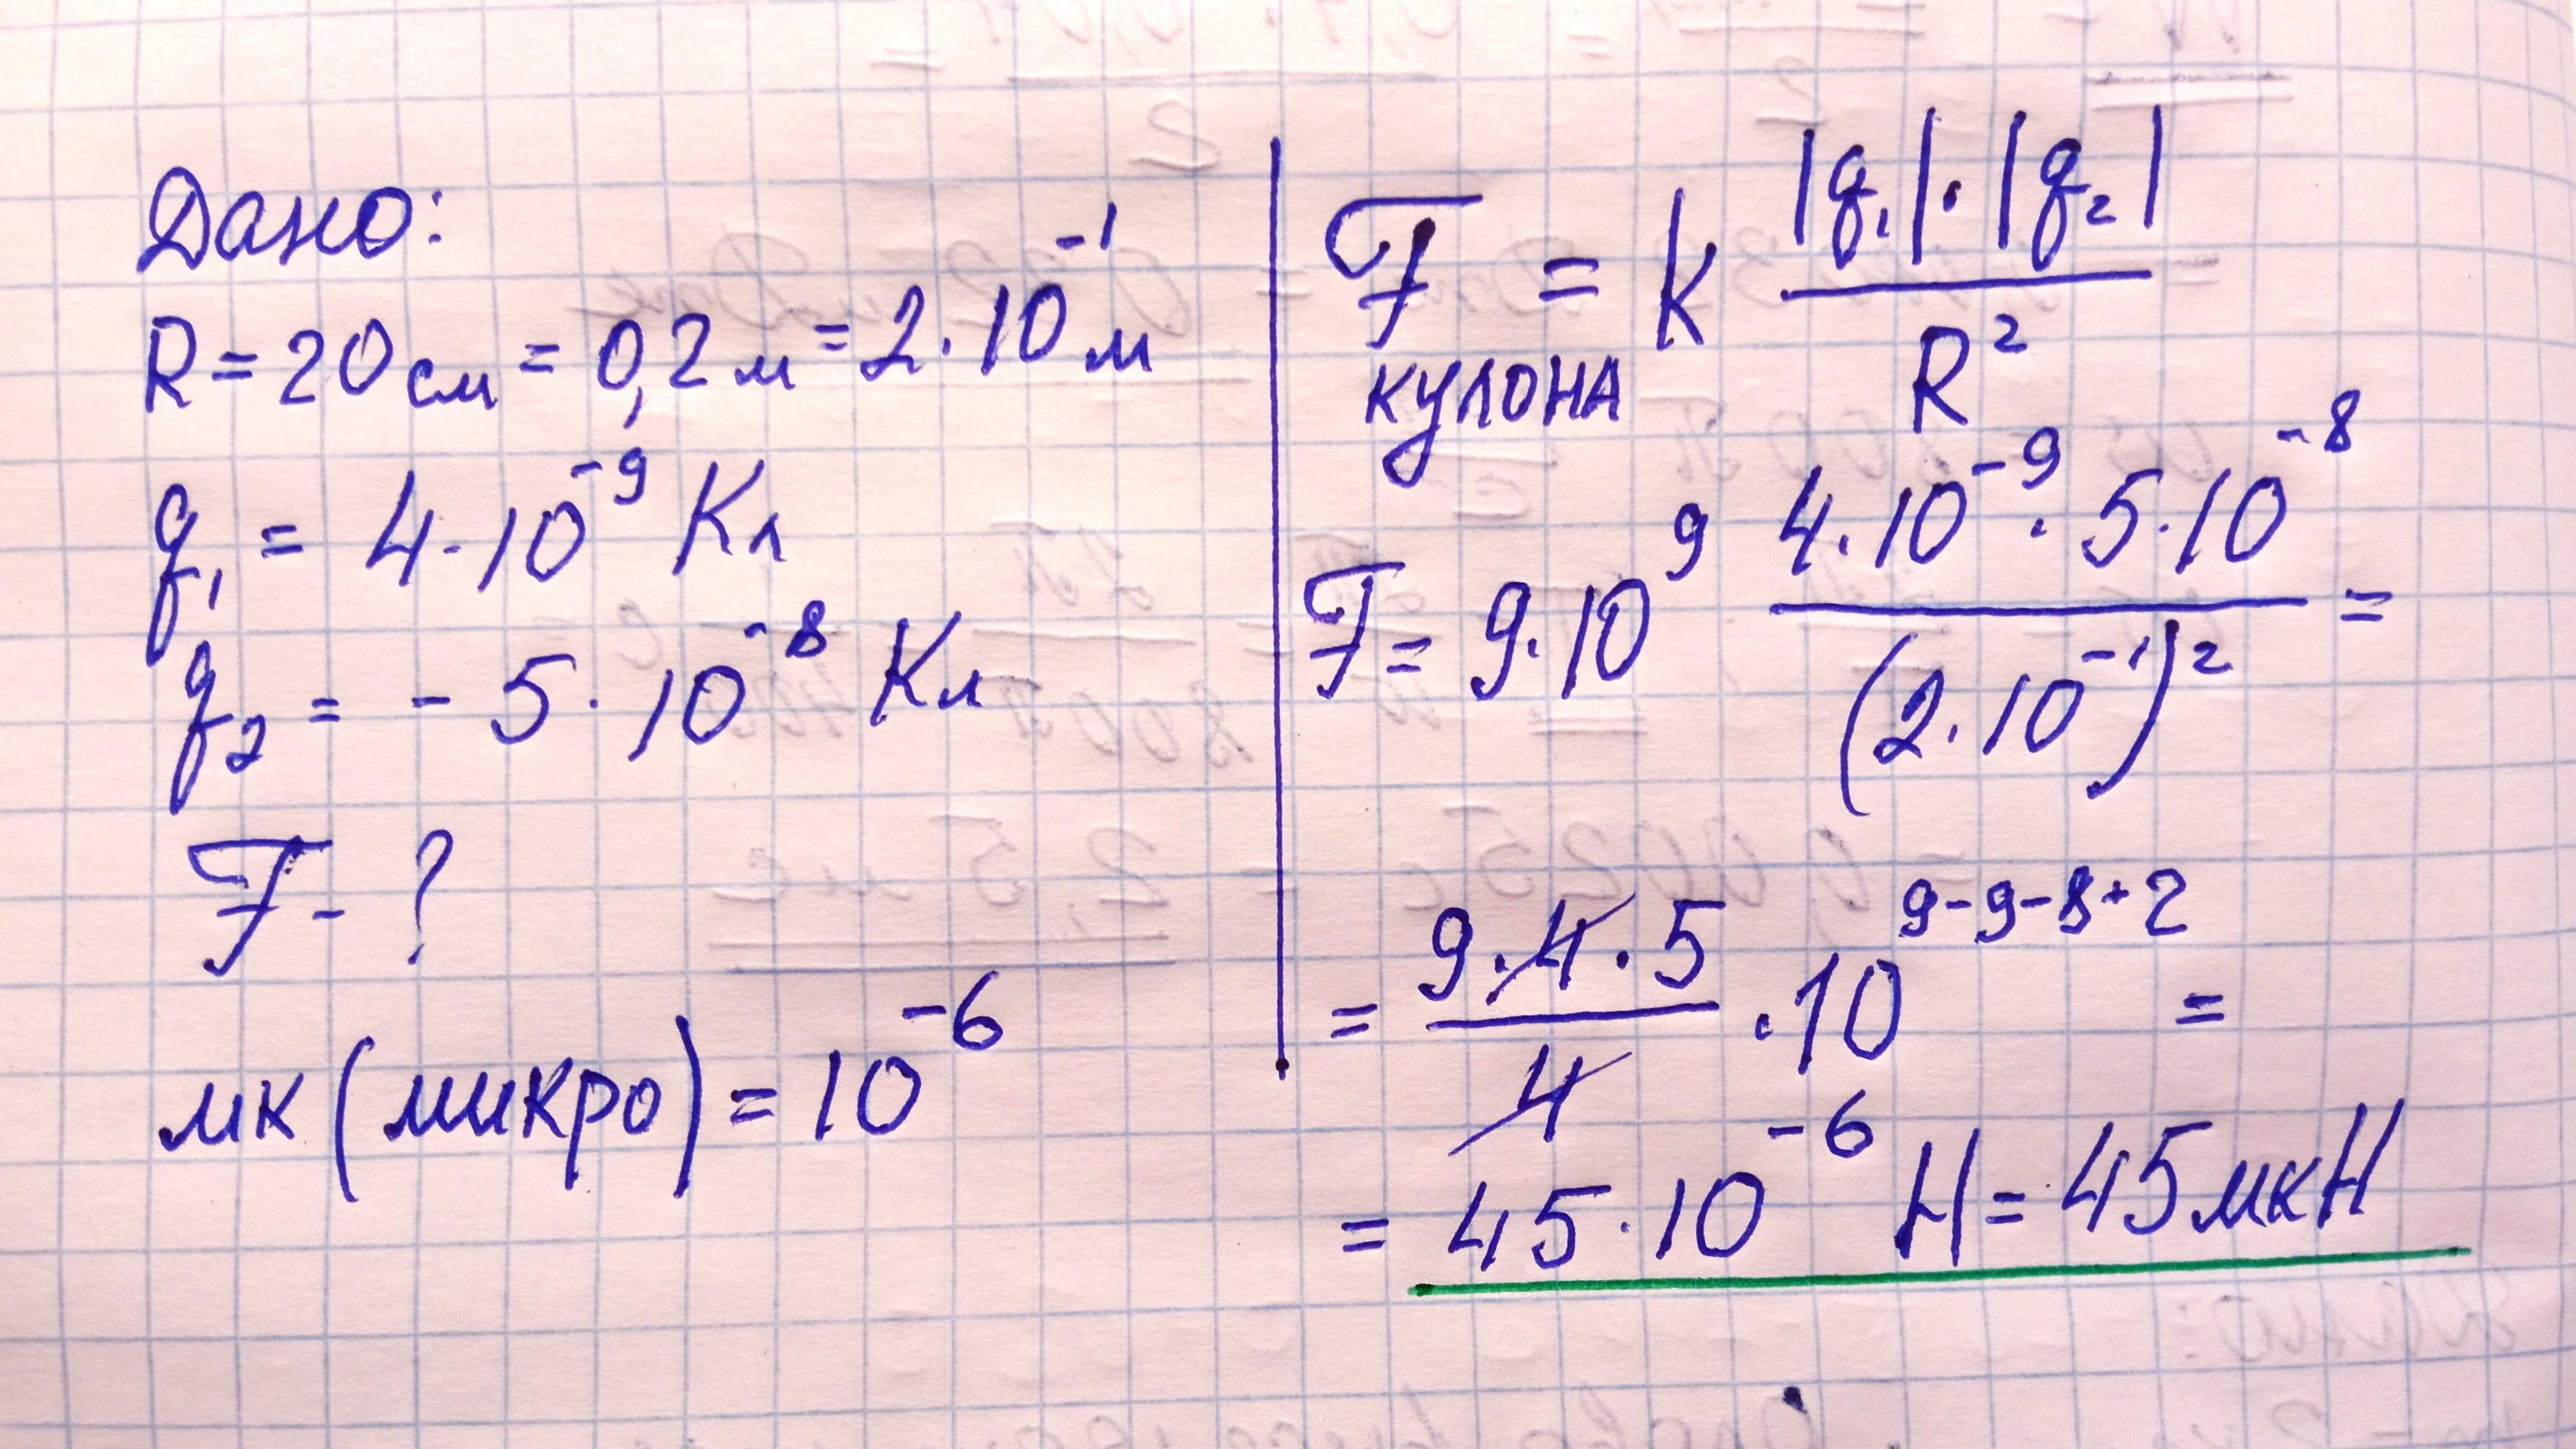 Дано:
R = 20 см = 0,2 м = 2·10⁻¹ м
q₁ = 4·10⁻⁹ Кл
q₂ = - 5·10⁻⁸ Кл
F - ?
мк (микро) = 10⁻⁶
F = k |q₁|·|q₂| / R²
кулона
F = 9·10⁹ 4·10⁻⁹·5·10⁻⁸ / (2·10⁻¹)² =
= 9·4·5 / 4 ·10⁹⁻⁹⁻⁸⁺² =
= 45·10⁻⁶ Н = 45 мкН